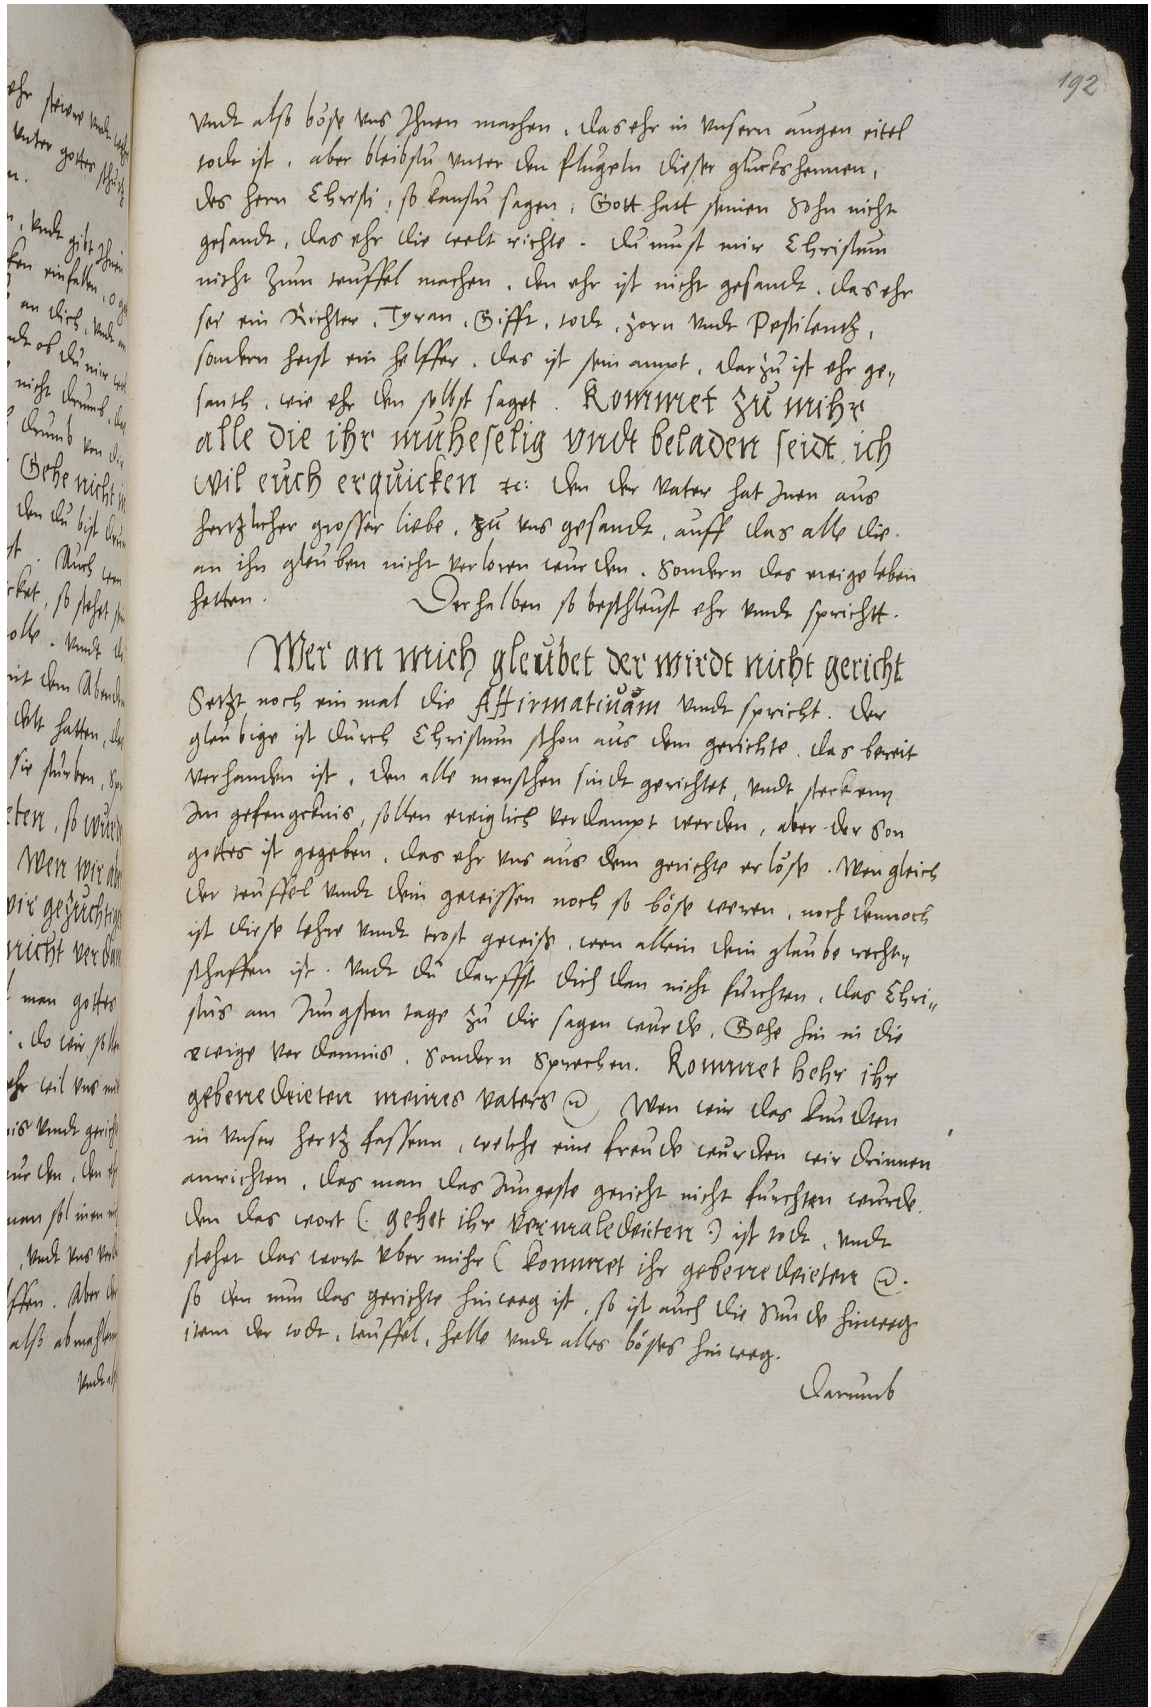 192
Vndt also böse vns Ihnen machen, das ehr in vnsern augen eitel
todt ist, aber bleibstu vnter den flugeln dieser gluckshennen,
des hern Christi, so kanstu sagen, Gott hatt seinen Sohn nicht
gesandt, das ehr die welt richte. du must mir Christum
nicht zum teuffel machen, den ehr ist nicht gesandt, das ehr
sei ein Richter, Tyran, Gifft, todt, zorn vndt Pestilentz,
sondern heist ein helffer, das ist sein ampt, darzu ist ehr ge„
santh, wie ehr den selbst saget. Kommet zu mihr
alle die ihr muheselig vndt beladen seidt ich
wil euch erquicken ꝛc: den der vater hat Inen aus
hertzlicher grosser liebe, zu vns gesandt, auff das alle die
an ihn gleuben nicht verloren wurden, Sondern das ewige leben
hetten. Derhalben so beschleust ehr vndt sprichtt.
Wer an mich gleubet der wirdt nicht gericht
Setzt noch ein mal die Affirmatiuam vndt spricht. der
gleubige ist durch Christum schon aus dem gerichte, das bereit
verhanden ist, den alle menschen sindt gerichtet, vndt steckenn
Im gefengcknis, sollen ewiglich verdampt werden, aber der Son
gottes ist gegeben, das ehr vns aus dem gerichte erlöse. Wen gleich
der teuffel vndt dein gewissen noch so böse weren, noch dennoch
ist diese lehre vndt trost gewiss, wen allein dein glaube recht„
schaffen ist. Vndt du darffst dich den nicht furchten, das Chri„
stus am Jungsten tage zu dir sagen wurde, Gehe hin in die
ewige verdamnis, Sondern Sprechen. Kommet hehr ihr
gebenedeieten meines vaters ꝛc, Wen wir das kundten
in vnser hertz fassenn, welche eine freude wurden wir drinnen
anrichten, das man das Jungeste gericht nicht furchten wurde.
den das wort (: gehet ihr vermaledeieten :) ist todt, vndt
stehet das wort vber mihr ( kommet ihr gebenedeieten ꝛc.
so den nun das gerichte hinweg ist, so ist auch die Sunde hinweg
item der todt, teuffel, helle vndt alles böses hinweg.
Darumb